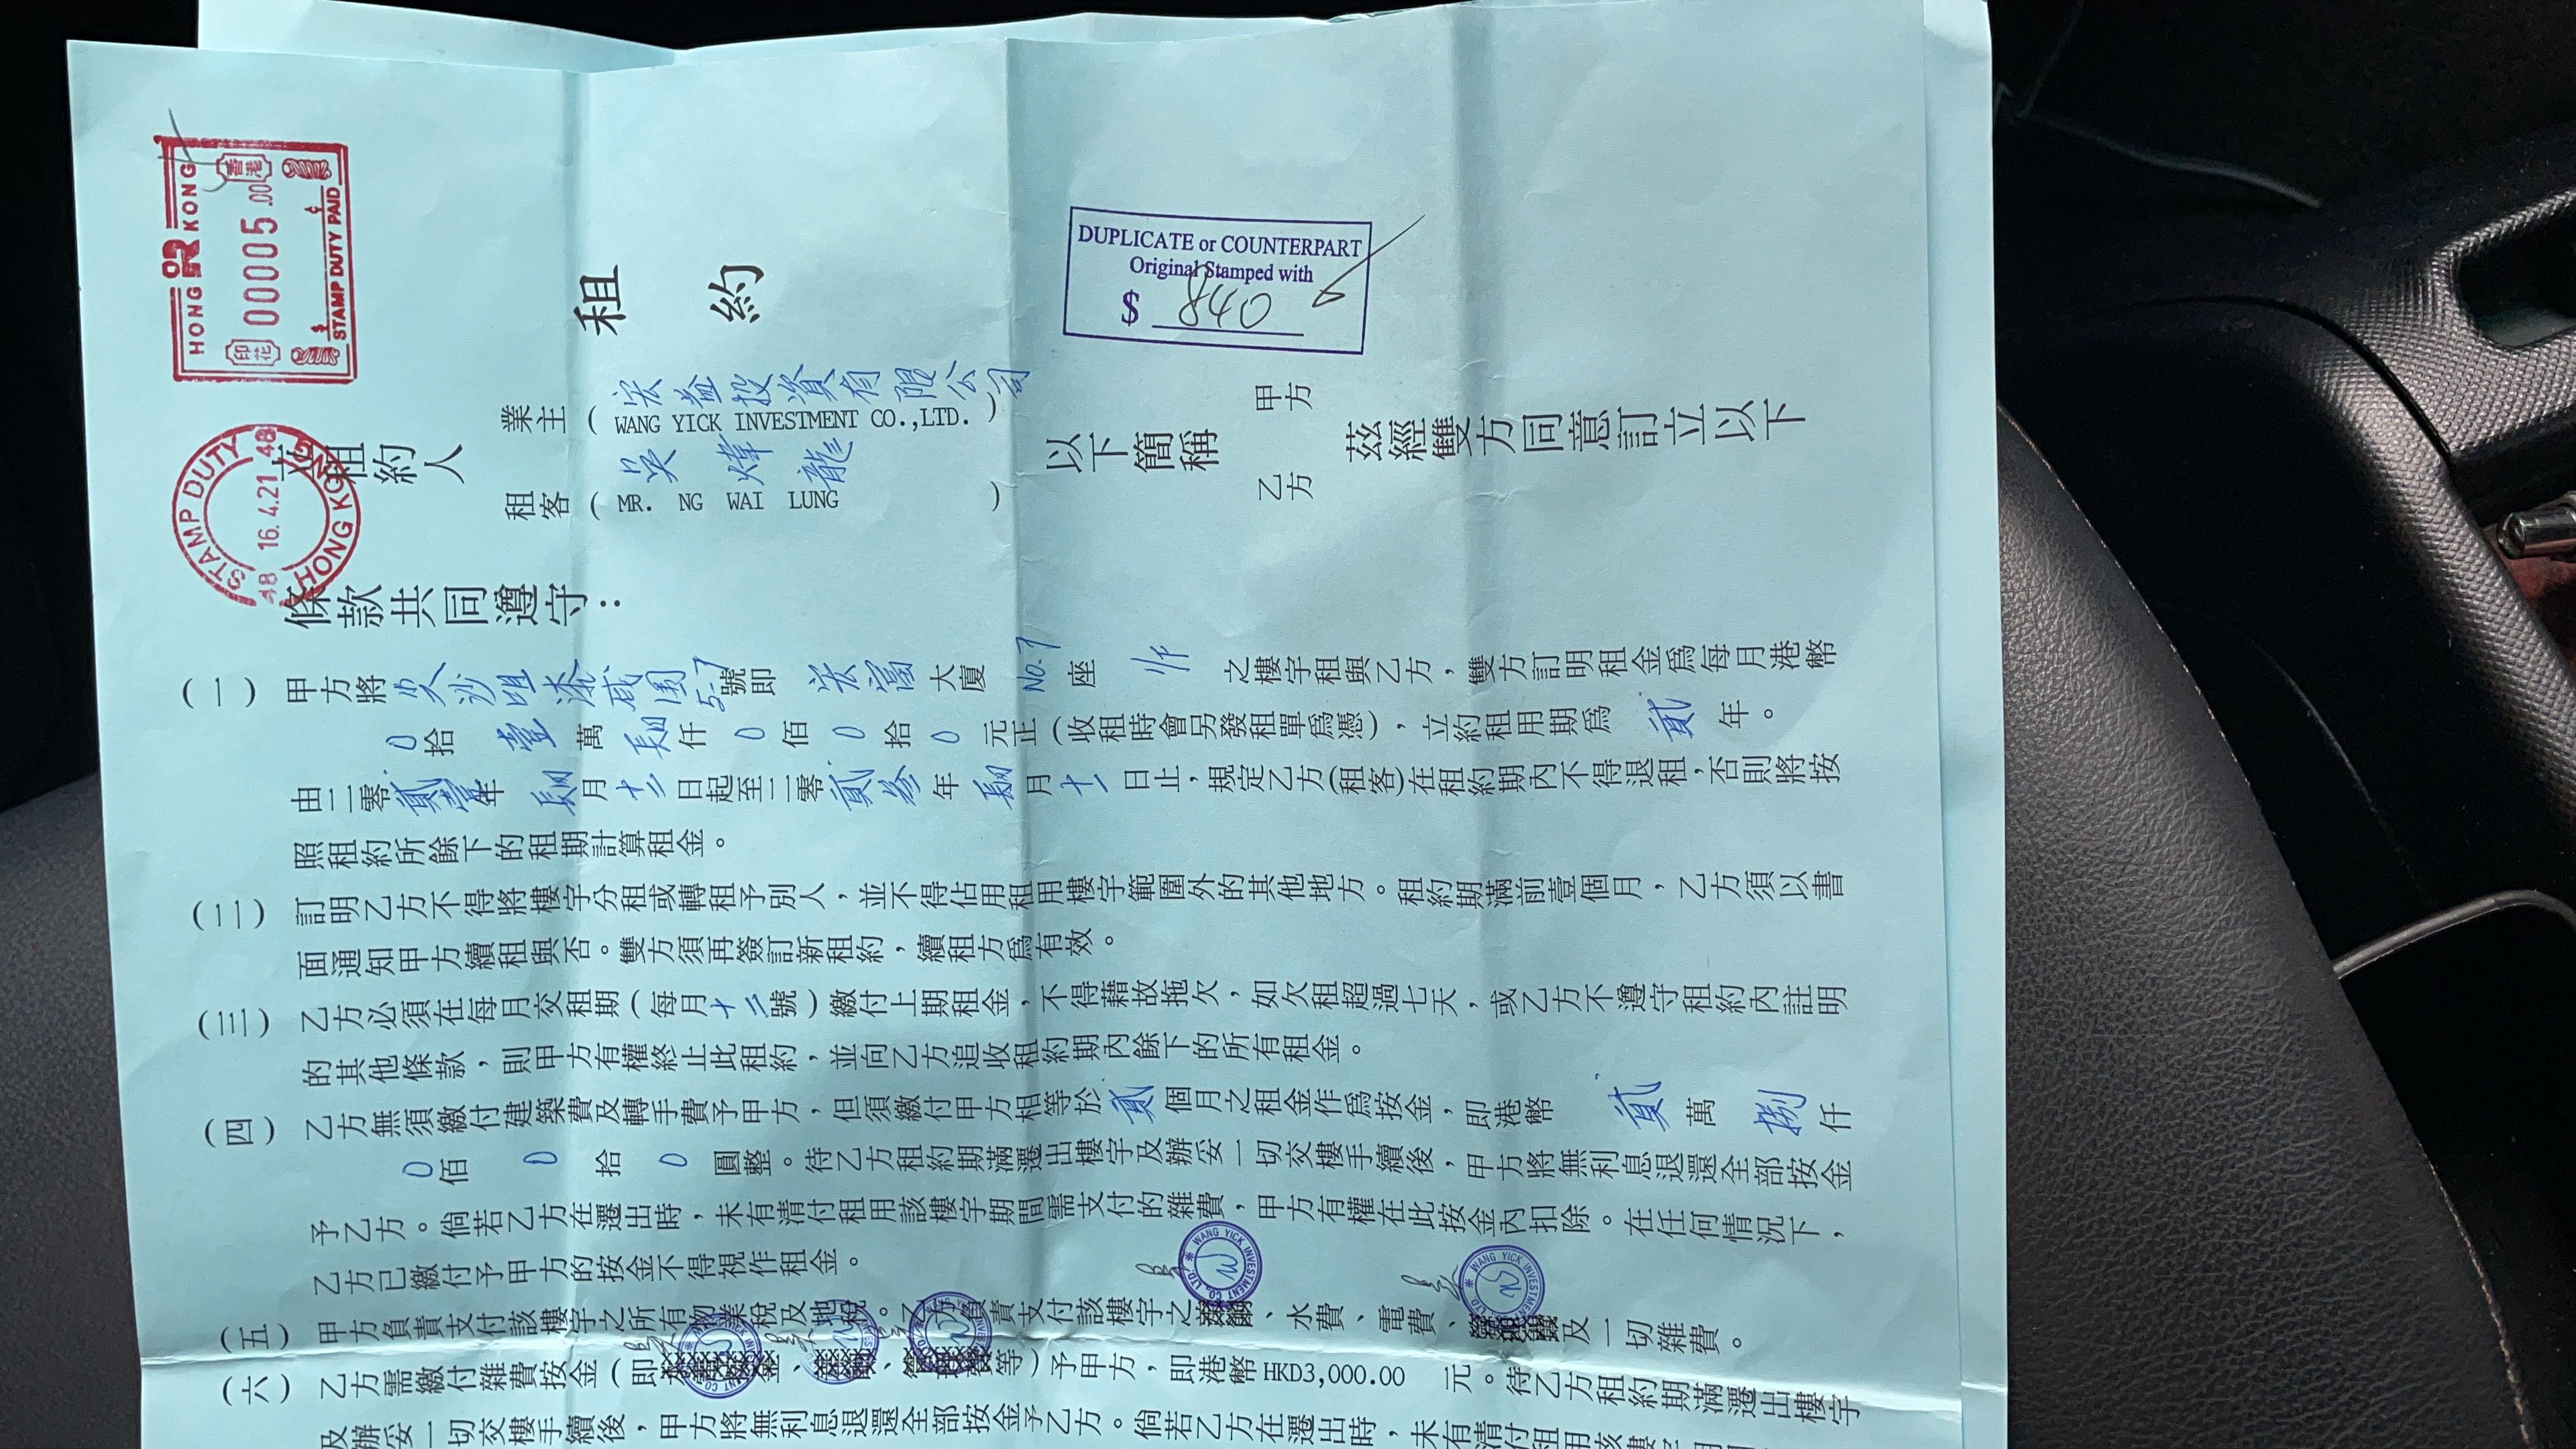 HONG KONG
印花 000005.00 香港
$ ¢
STAMP DUTY PAID
STAMP DUTY
48 16.4.21 48
HONG KONG
租 約
DUPLICATE or COUNTERPART
Original Stamped with
$ 840
立租約人
業主 ( 宏益投資有限公司
WANG YICK INVESTMENT CO.,LTD. )
租客 ( 吳煒龍
MR. NG WAI LUNG )
以下簡稱 甲方 乙方
茲經雙方同意訂立以下
條款共同遵守：
(一) 甲方將尖沙咀漆咸圍5-7號即 宏富 大廈 No.7 座 之樓宇租與乙方，雙方訂明租金爲每月港幣
0 拾 壹 萬 肆 仟 0 佰 0 拾 0 元正 (收租時會另發租單爲憑)，立約租用期爲 貳 年。
由二零貳壹年 肆 月 十二 日起至二零貳叁年 肆 月 十一 日止，規定乙方(租客)在租約期內不得退租，否則將按
照租約所餘下的租期計算租金。
(二) 訂明乙方不得將樓宇分租或轉租予別人，並不得佔用租用樓宇範圍外的其他地方。租約期滿前壹個月，乙方須以書
面通知甲方續租與否。雙方須再簽訂新租約，續租方爲有效。
(三) 乙方必須在每月交租期(每月十二號)繳付上期租金，不得藉故拖欠，如欠租超過七天，或乙方不遵守租約內註明
的其他條款，則甲方有權終止此租約，並向乙方追收租約期內餘下的所有租金。
(四) 乙方無須繳付建築費及轉手費予甲方，但須繳付甲方相等於貳個月之租金作爲按金，即港幣 貳 萬 捌 仟
0 佰 0 拾 0 圓整。待乙方租約期滿遷出樓宇及辦妥一切交樓手續後，甲方將無利息退還全部按金
予乙方。倘若乙方在遷出時，未有清付租用該樓宇期間需支付的雜費，甲方有權在此按金內扣除。在任何情況下，
乙方已繳付予甲方的按金不得視作租金。
(五) 甲方負責支付該樓宇之所有物業稅及地稅。乙方負責支付該樓宇之、水費、電費、及一切雜費。
(六) 乙方需繳付雜費按金(即、、等)予甲方，即港幣 HKD3,000.00 元。待乙方租約期滿遷出樓宇
及辦妥一切交樓手續後，甲方將無利息退還全部按金予乙方。倘若乙方在遷出時，未有清付租用該樓宇期間
WANG YICK INVESTMENT CO. LTD.
WANG YICK INVESTMENT CO. LTD.